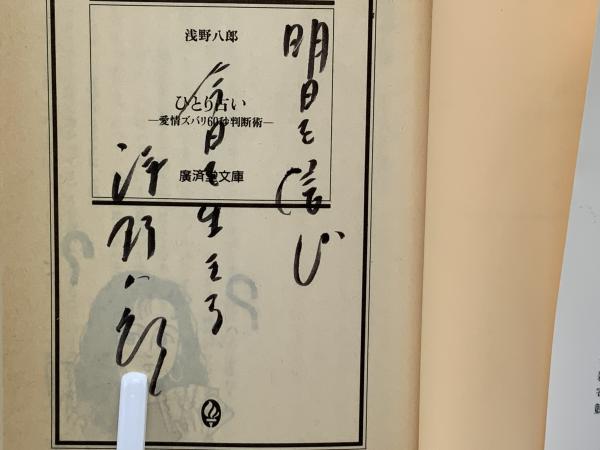 浅野八郎
ひとり占い
—愛情ズバリ60秒判断術—
廣済堂文庫
明日を信び
今日を生きる
浅野八郎